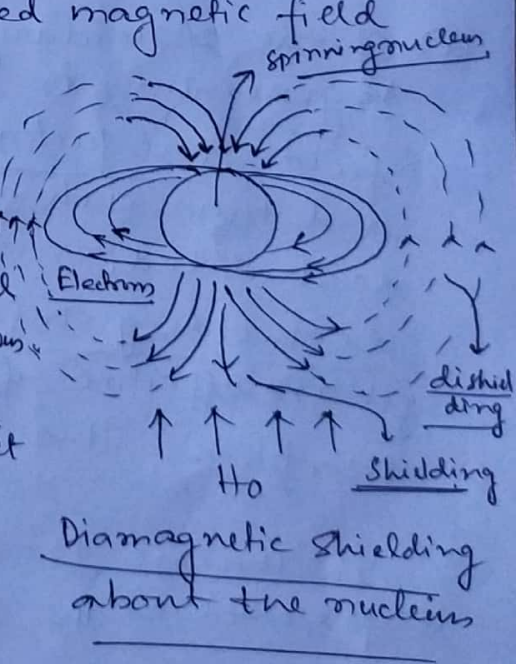 ed magnetic field
spinning nucleus
Electrons
dishiel
ding
Shielding
Ho
Diamagnetic Shielding
about the nucleus